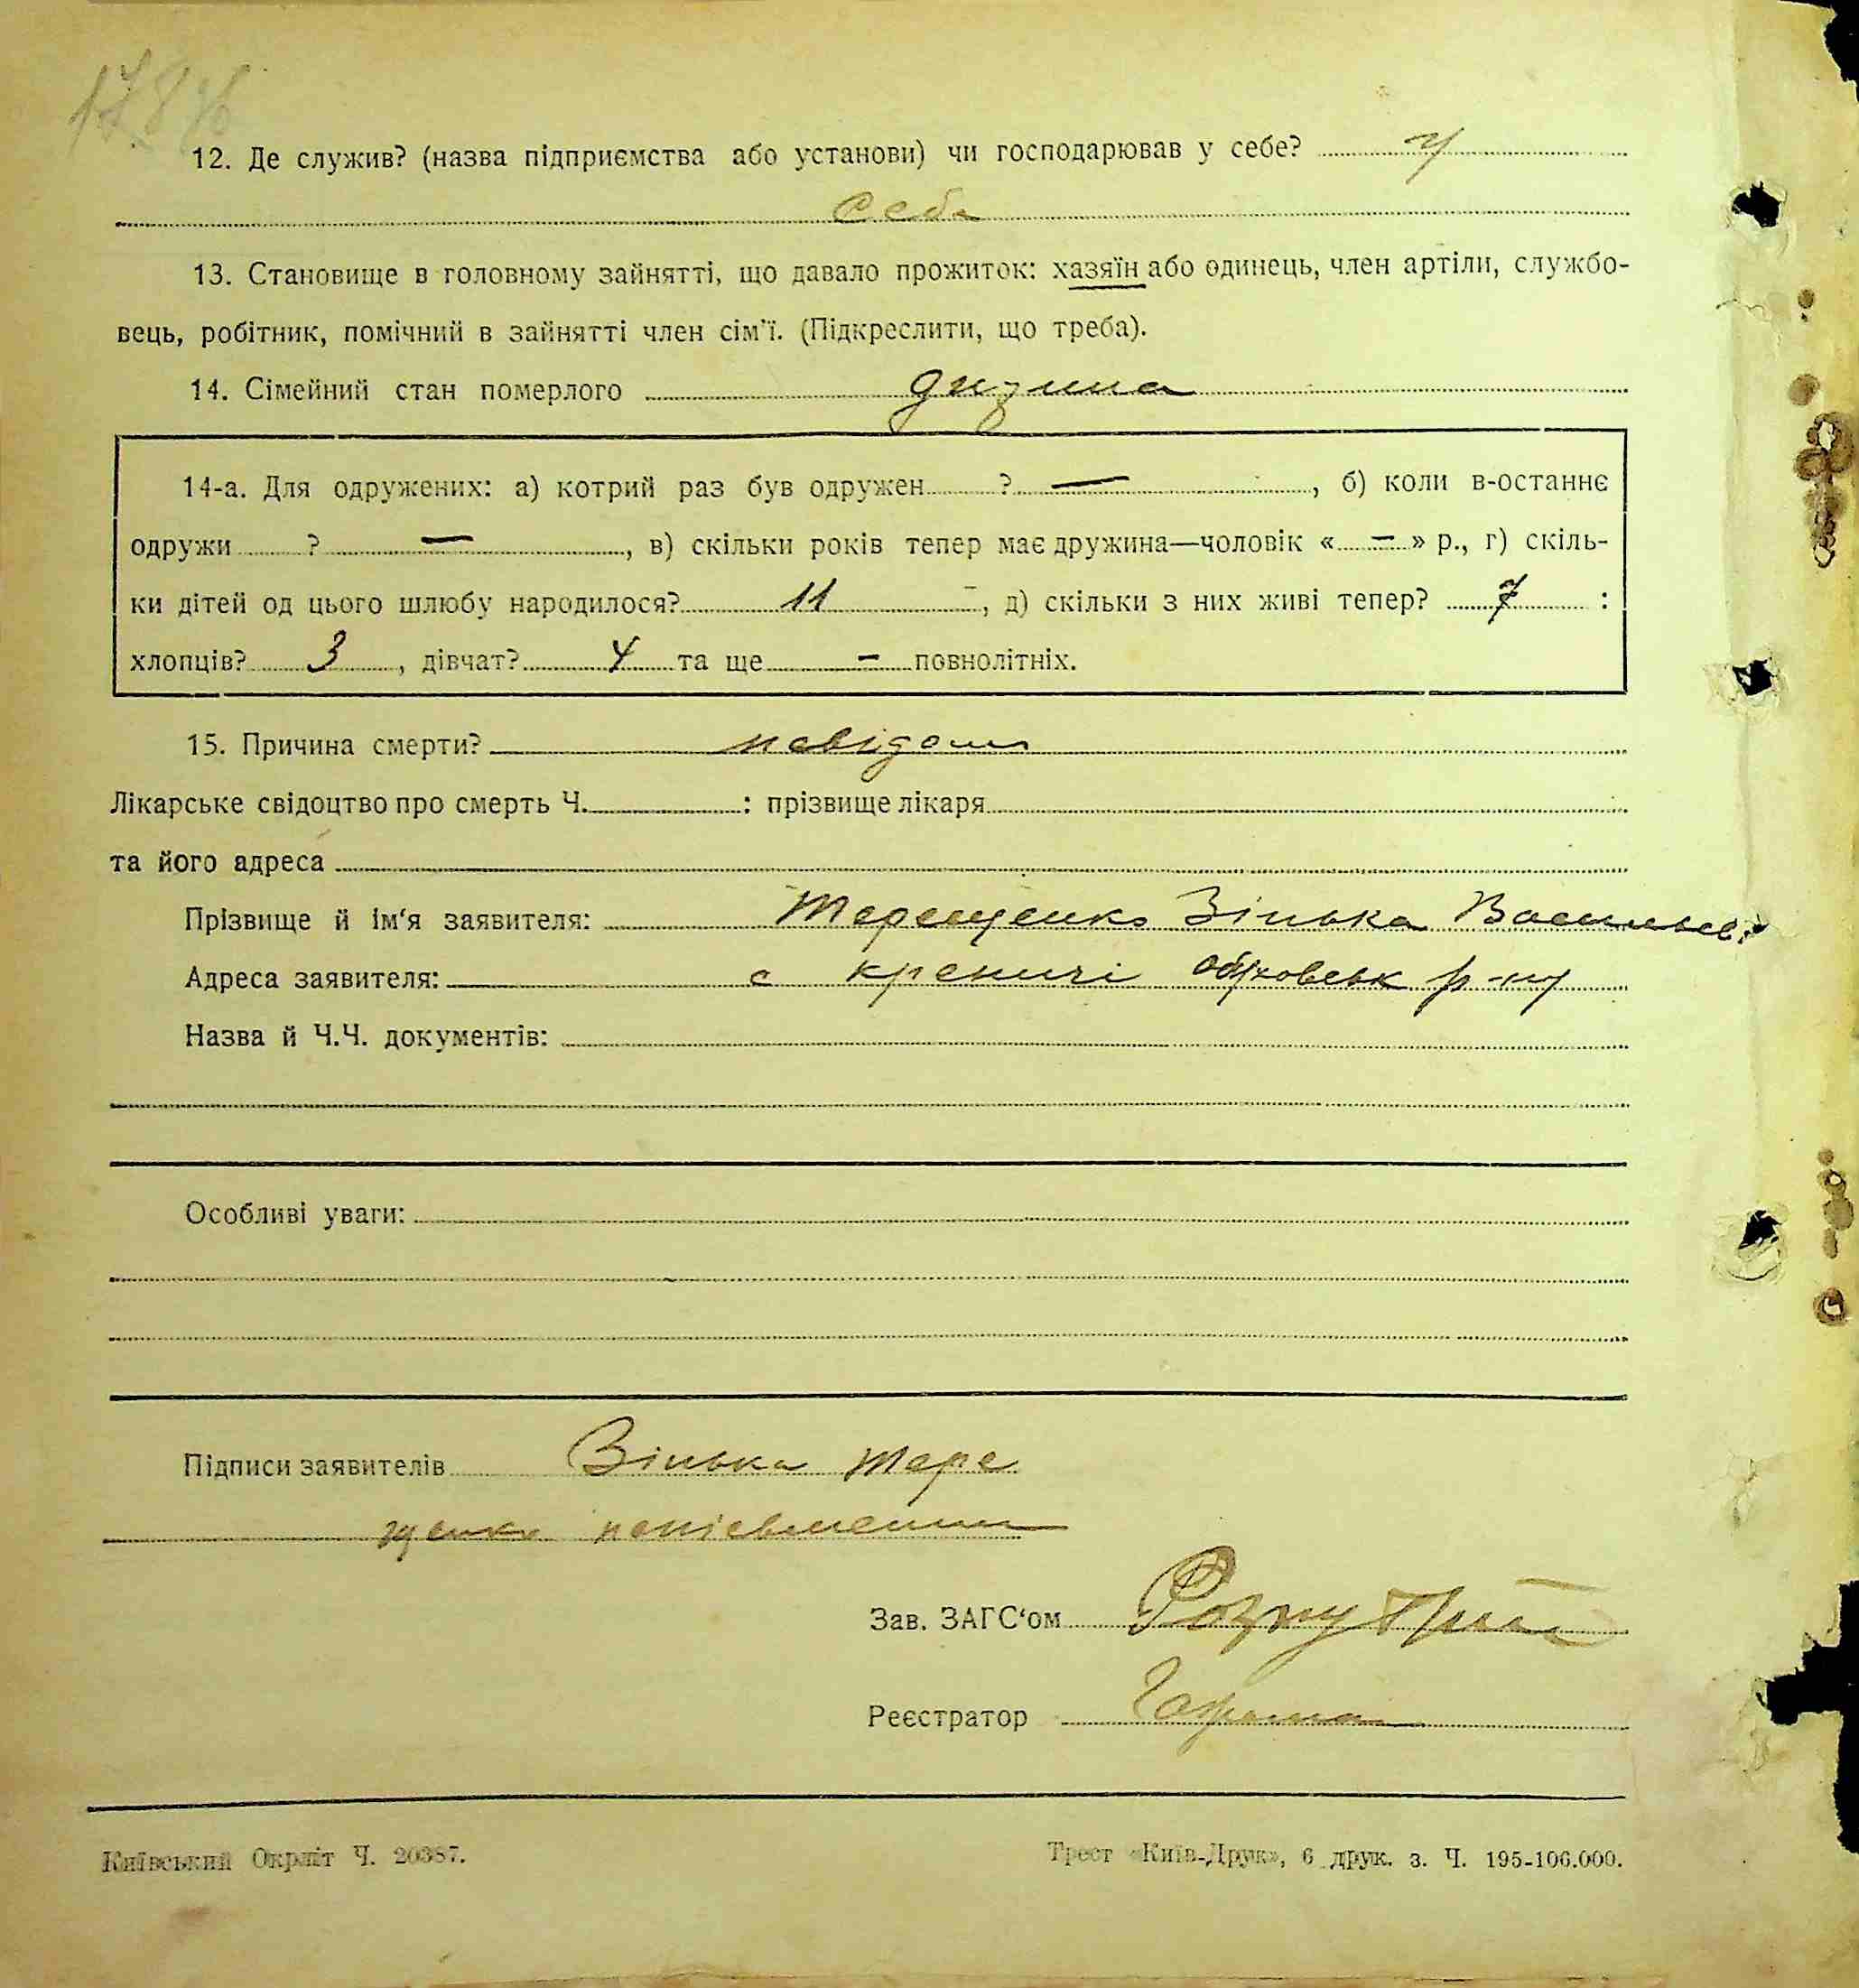 12. Де служив? (назва підприємства або установи) чи господарював у себе? у
себе
13. Становище в головному зайнятті, що давало прожиток: хазяїн або одинець, член артіли, службо-
вець, робітник, помічний в зайнятті член сім'ї. (Підкреслити, що треба).
14. Сімейний стан померлого дитина
14-а. Для одружених: а) котрий раз був одружен ? —, б) коли в-останнє
одружи ? —, в) скільки років тепер має дружина—чоловік « — » р., г) скіль-
ки дітей од цього шлюбу народилося? 11 —, д) скільки з них живі тепер? 7 :
хлопців? 3, дівчат? 4 та ще — повнолітніх.
15. Причина смерти? невідома
Лікарське свідоцтво про смерть Ч. : прізвище лікаря
та його адреса
Прізвище й ім'я заявителя: Терещенко Зінька Васильев.
Адреса заявителя: с Креничі Обуховськ р-ну
Назва й Ч.Ч. документів:
Особливі уваги:
Підписи заявителів Зінька Тере
щенко
Зав. ЗАГС'ом
Реєстратор
Київський Окрліт Ч. 20387.
Трест «Київ-Друк», 6 друк. з. Ч. 195-106.000.